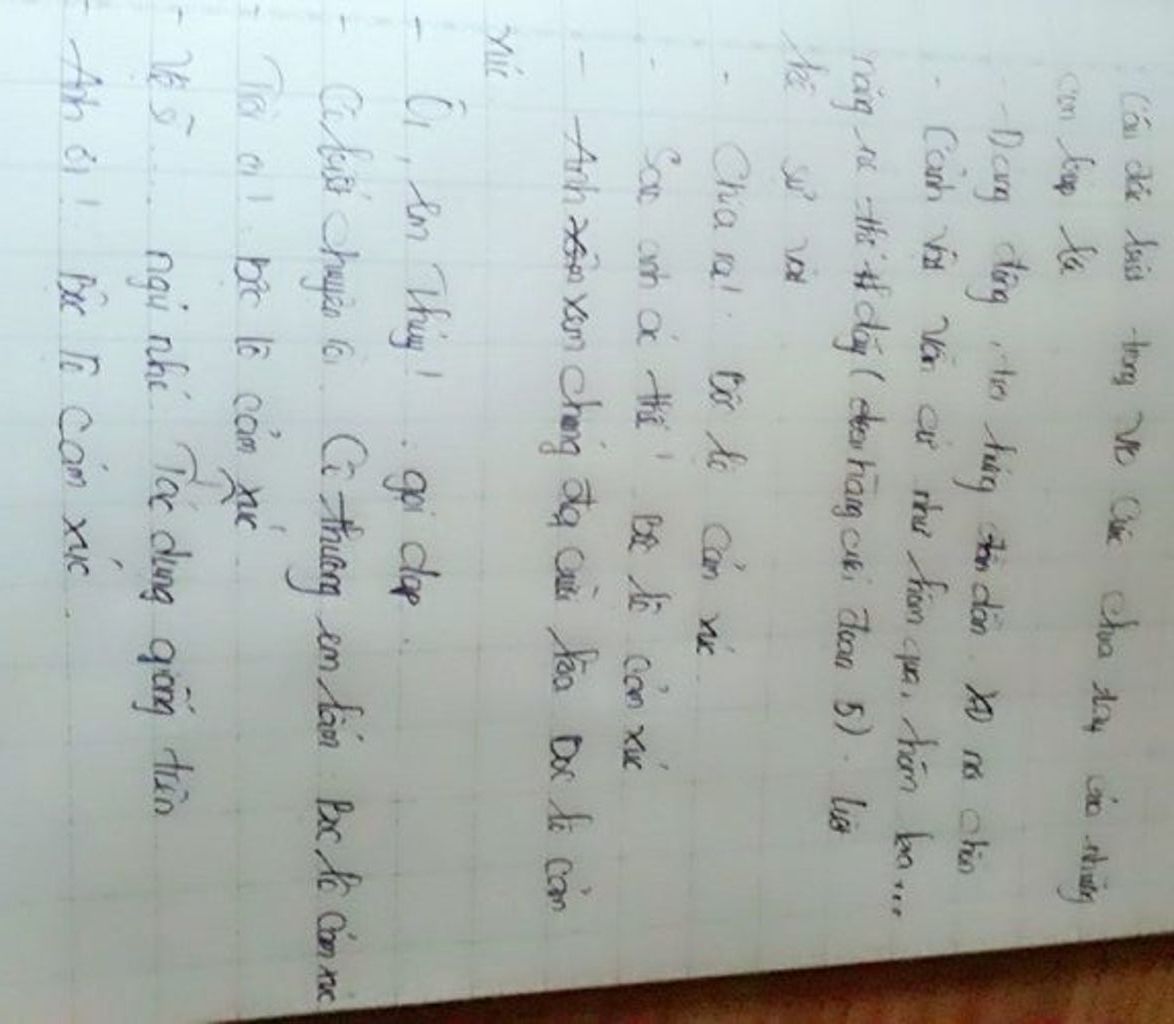 Câu đặc biệt trong VB Cuộc chia tay của những
con búp bê
- Đằng đông, trời hửng dần. XĐ nơi chốn
- Cảnh vật vẫn cứ như hôm qua, hôm kia...
ráng rá thế thôi đấy (đoạn hàng cuối đoạn 5). liệt
kê sự vật
- Chia ra! Bộc lộ cảm xúc
- Sao anh ác thế! Bộc lộ cảm xúc
- Anh xem chúng đang cười kìa Bộc lộ cảm
xúc
- Ôi, em Thủy! . gọi đáp.
- Cô biết chuyện rồi. Cô thương em lắm. Bộc lộ cảm xúc
- Trời ơi! Bộc lộ cảm xúc.
- Vệ sĩ.... ngủ nhé. Tác dụng giống trên
- Anh ơi! Bộc lộ cảm xúc.